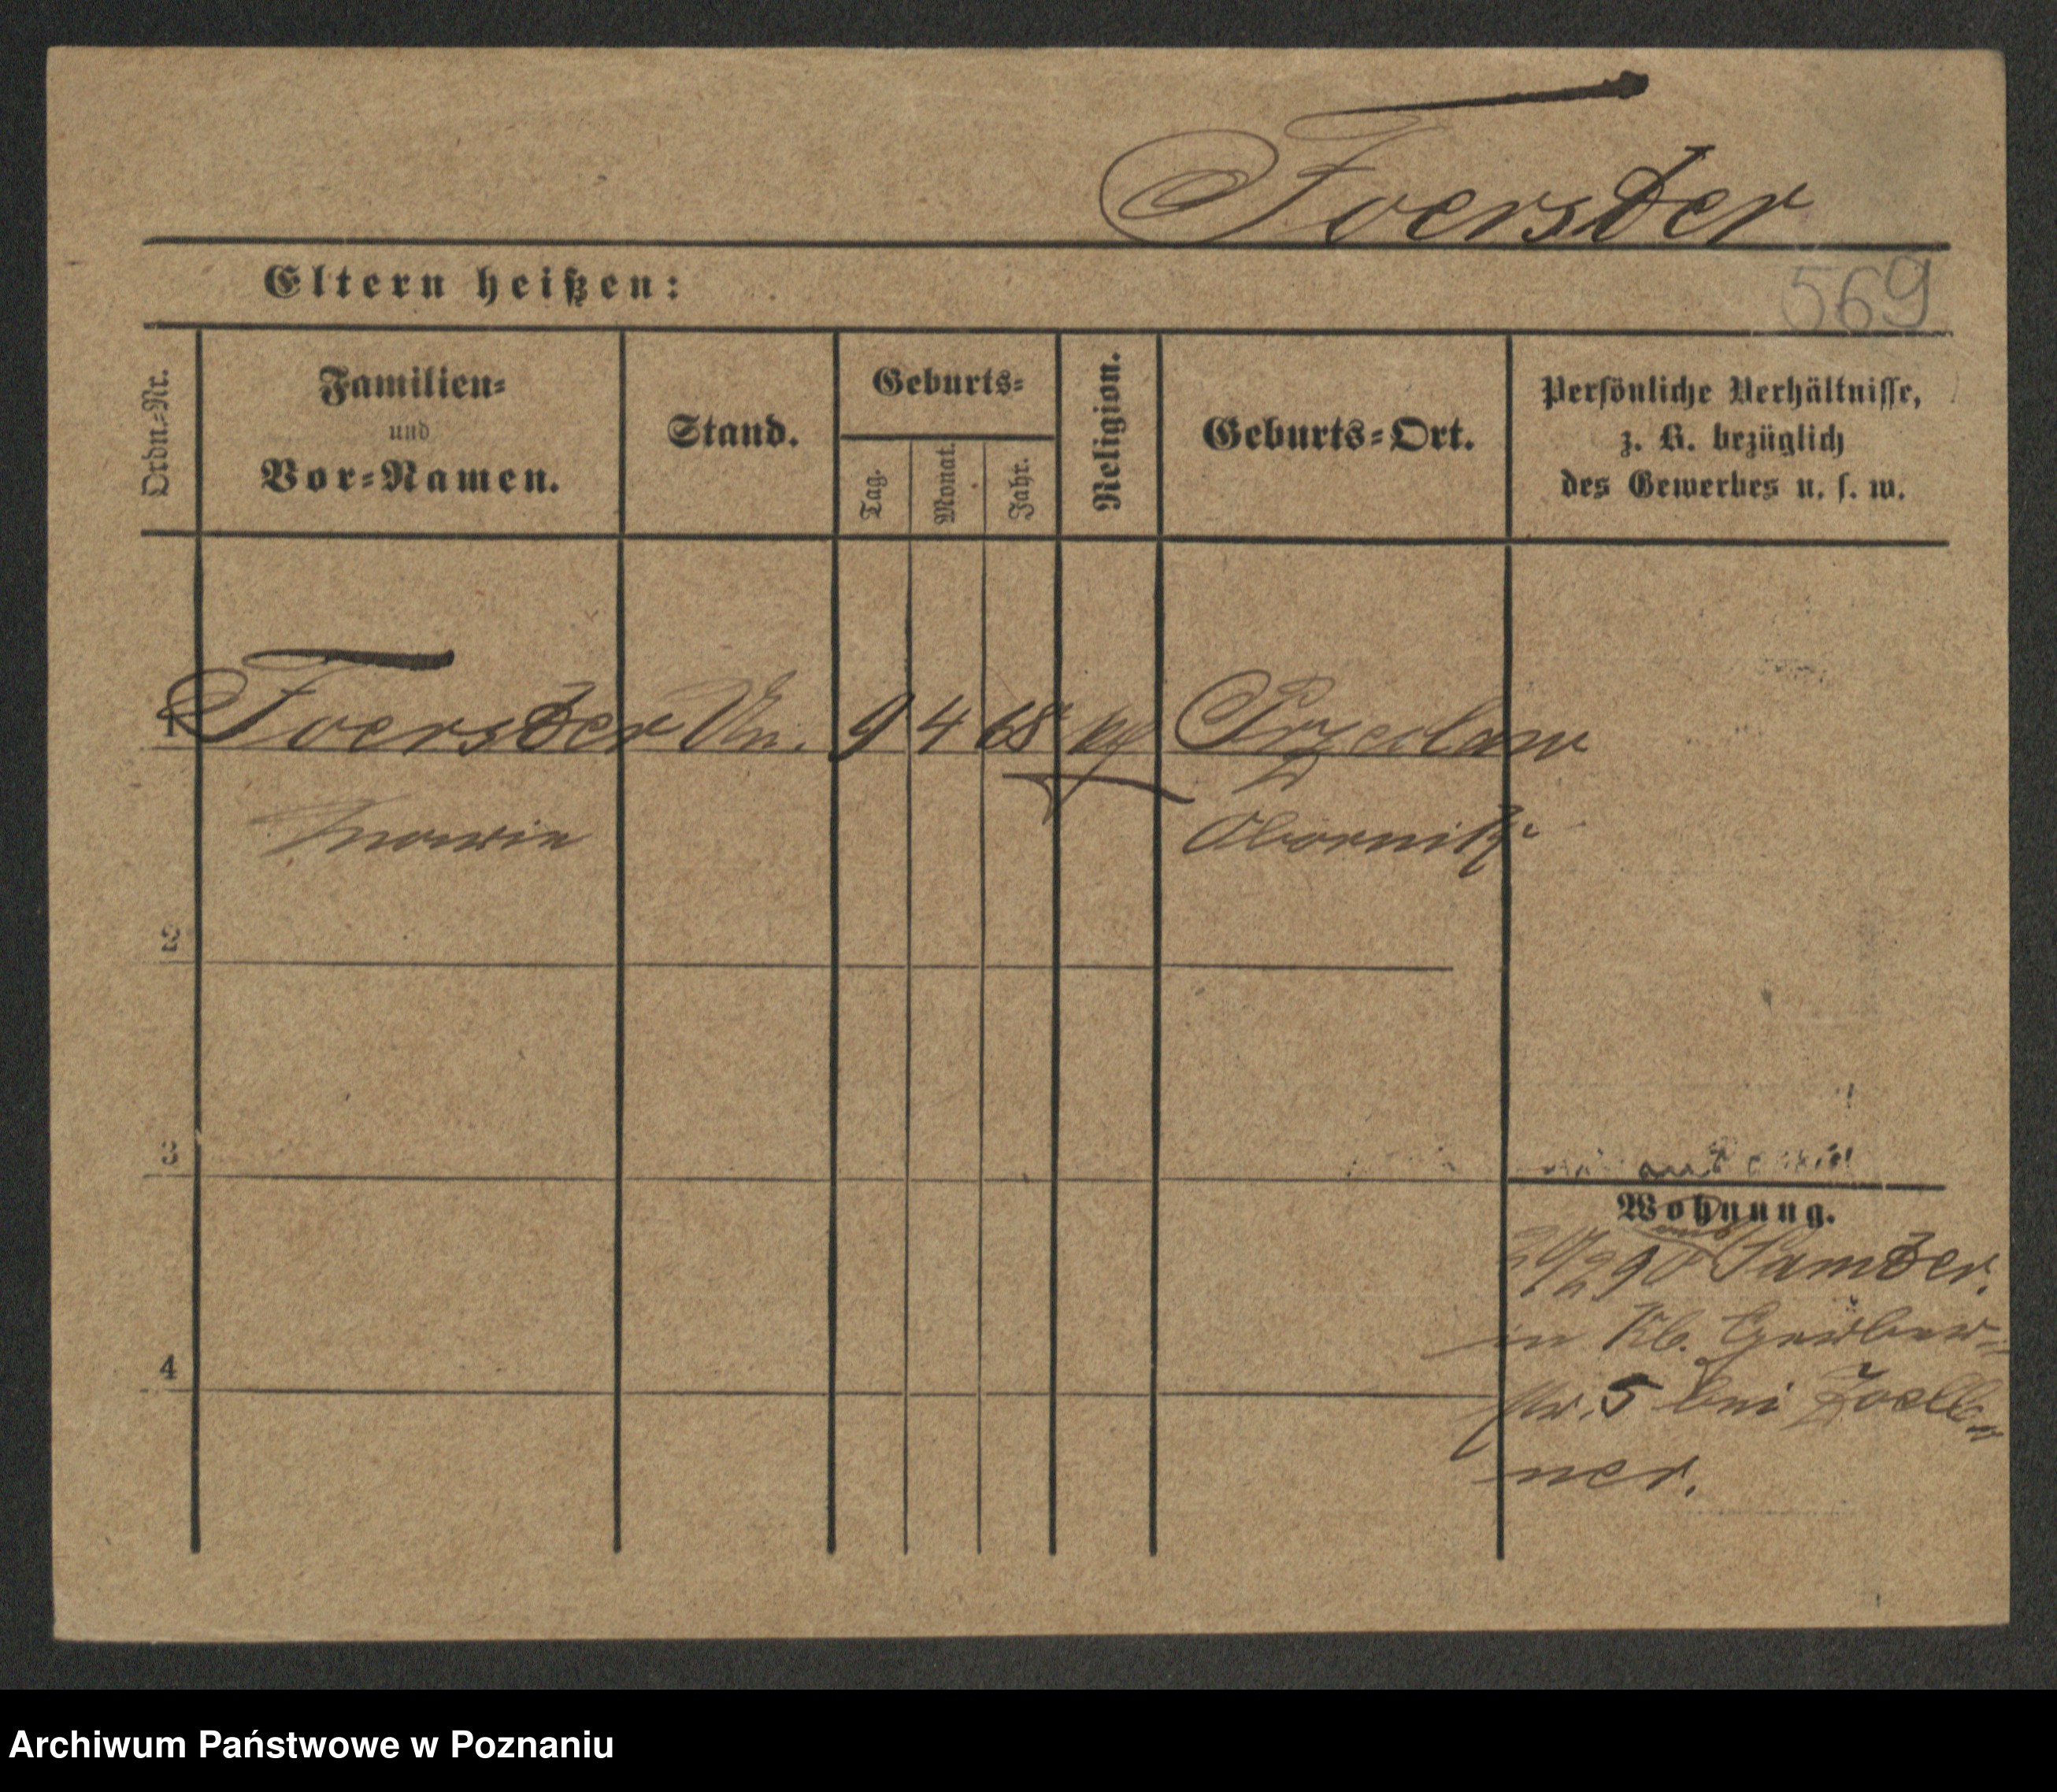 Foerster
Eltern heißen:
569
Ordn.=Nr.
Familien=
und
Vor=Namen.
Stand.
Geburts=
Tag.
Monat.
Jahr.
Religion.
Geburts=Ort.
Persönliche Verhältnisse,
z. B. bezüglich
des Gewerbes u. s. w.
1 Foerster Un. 9 4 68 Przeclaw
Obornik
2
3
Wohnung.
90 Samter.
in Kl. Gerber-
str. 5 bei Zoell-
ner.
4
Archiwum Państwowe w Poznaniu